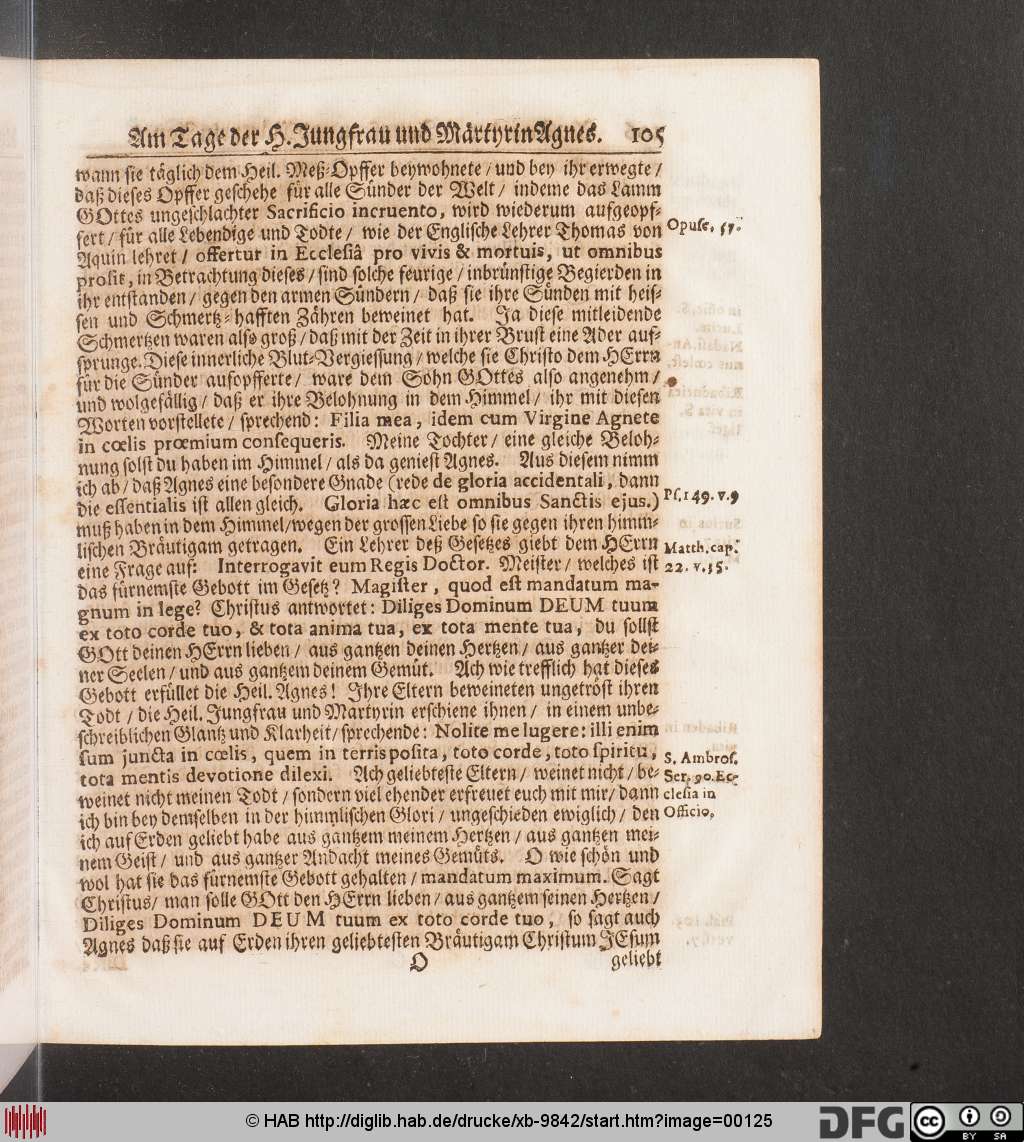 Am Tage der H. Jungfrau und Märtyrin Agnes. 105
wann sie täglich dem Heil. Meß-Opffer beywohnete / und bey ihr erwegte /
daß dieses Opffer geschehe für alle Sünder der Welt / indeme das Lamm
GOttes ungeschlachter Sacrificio incruento, wird wiederum aufgeopf-
fert / für alle Lebendige und Todte / wie der Englische Lehrer Thomas von
Opusc. 57.
Aquin lehret / offertur in Ecclesiâ pro vivis & mortuis, ut omnibus
prosit, in Betrachtung dieses / sind solche feurige / inbrünstige Begierden in
ihr entstanden / gegen den armen Sündern / daß sie ihre Sünden mit heis-
sen und Schmertz-hafften Zähren beweinet hat. Ja diese mitleidende
Schmertzen waren also groß / daß mit der Zeit in ihrer Brust eine Ader auf-
sprunge. Diese innerliche Blut-Vergiessung / welche sie Christo dem HErrn
für die Sünder aufopfferte / ware dem Sohn GOttes also angenehm /
und wolgefällig / daß er ihre Belohnung in dem Himmel / ihr mit diesen
Worten vorstellete / sprechend: Filia mea, idem cum Virgine Agnete
in cœlis prœmium consequeris. Meine Tochter / eine gleiche Beloh-
nung solst du haben im Himmel / als da geniest Agnes. Aus diesem nimm
ich ab / daß Agnes eine besondere Gnade (rede de gloria accidentali, dann
die essentialis ist allen gleich. Gloria hæc est omnibus Sanctis ejus.)
Ps. 149. v. 9
muß haben in dem Himmel / wegen der grossen Liebe so sie gegen ihren himm-
lischen Bräutigam getragen. Ein Lehrer deß Gesetzes giebt dem HErrn
Matth. cap.
eine Frage auf: Interrogavit eum Regis Doctor. Meister / welches ist
22. v. 35.
das fürnemste Gebott im Gesetz? Magister, quod est mandatum ma-
gnum in lege? Christus antwortet: Diliges Dominum DEUM tuum
ex toto corde tuo, & tota anima tua, ex tota mente tua, du sollst
GOtt deinen HErrn lieben / aus gantzen deinen Hertzen / aus gantzer dei-
ner Seelen / und aus gantzem deinem Gemüt. Ach wie trefflich hat dieses
Gebott erfüllet die Heil. Agnes! Ihre Eltern beweineten ungetröst ihren
Todt / die Heil. Jungfrau und Martyrin erschiene ihnen / in einem unbe-
schreiblichen Glantz und Klarheit / sprechende: Nolite me lugere: illi enim
sum juncta in cœlis, quem in terris posita, toto corde, toto spiritu,
S. Ambros.
tota mentis devotione dilexi. Ach geliebteste Eltern / weinet nicht / be-
Ser. 90. Ec-
weinet nicht meinen Todt / sondern viel ehender erfreuet euch mit mir / dann
clesia in
ich bin bey demselben in der himmlischen Glori / ungeschieden ewiglich / den
Officio.
ich auf Erden geliebt habe aus gantzem meinem Hertzen / aus gantzen mei-
nem Geist / und aus gantzer Andacht meines Gemüts. O wie schön und
wol hat sie das fürnemste Gebott gehalten / mandatum maximum. Sagt
Christus / man solle GOtt den HErrn lieben / aus gantzem seinen Hertzen /
Diliges Dominum DEUM tuum ex toto corde tuo, so sagt auch
Agnes daß sie auf Erden ihren geliebtesten Bräutigam Christum JEsum
O geliebt
© HAB http://diglib.hab.de/drucke/xb-9842/start.htm?image=00125
DFG cc BY SA